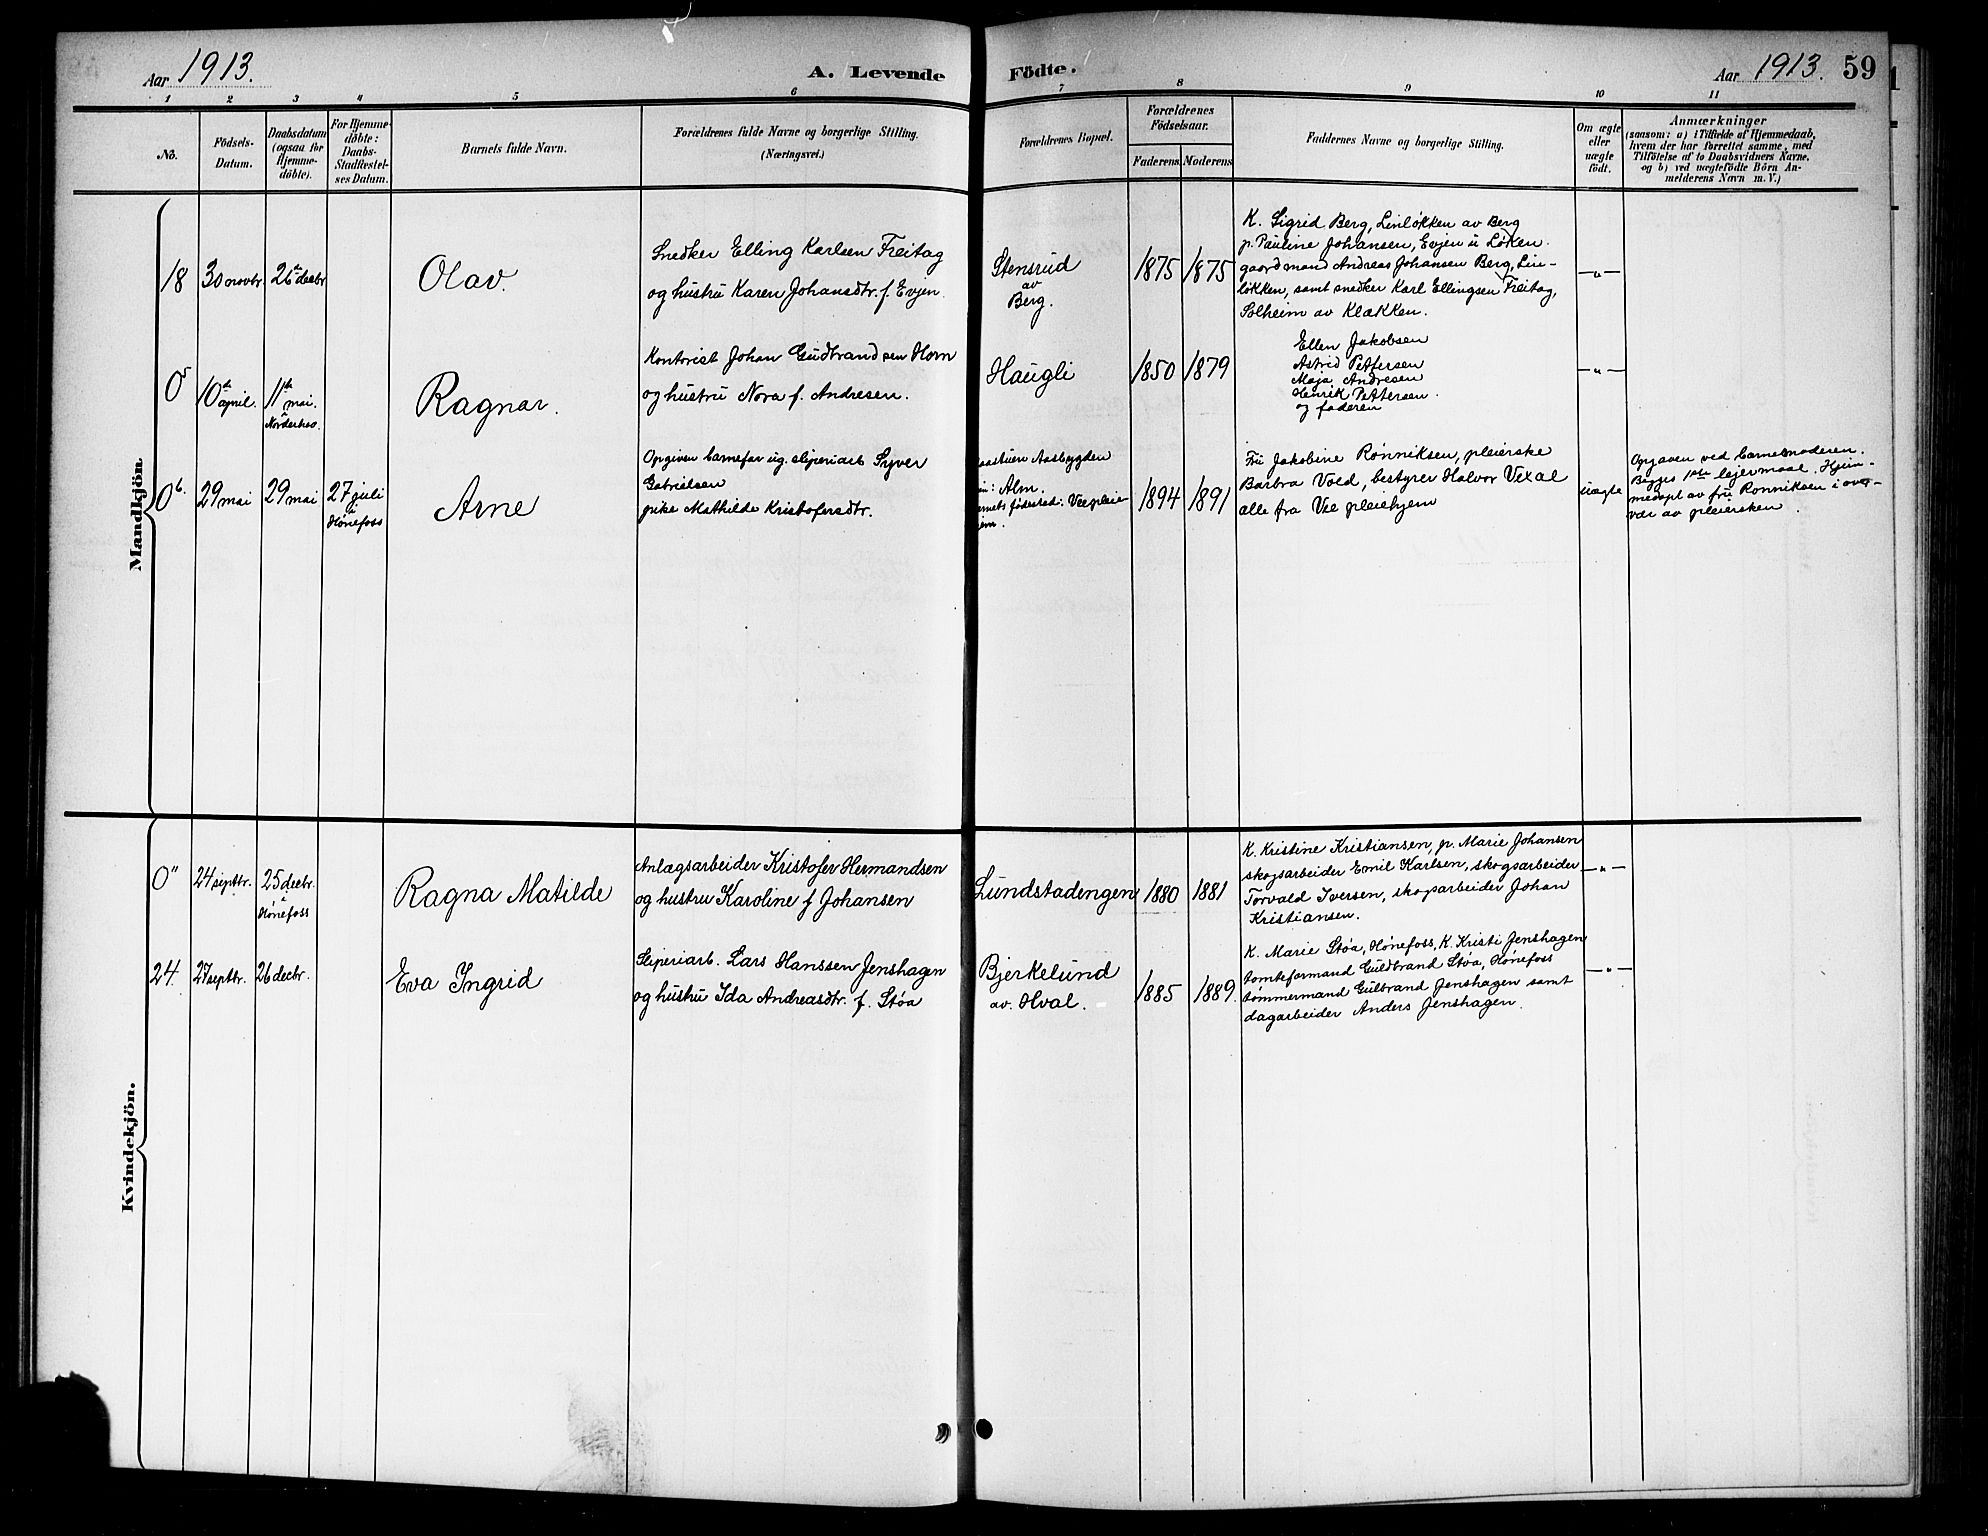 Aar 1913.
A. Levende Födte.
Aar 1913. 59
1 2 3 4 5 6 7 8 9 10 11
No.
Födsels-
Datum.
Daabsdatum
(ogsaa for
Hjemme-
döbte).
For Hjemme-
döbte:
Daabs-
Stadfæstel-
ses Datum.
Barnets fulde Navn.
Forældrenes fulde Navne og borgerlige Stilling.
(Næringsvei.)
Forældrenes Bopæl.
Forældrenes
Födselsaar.
Faderens Moderens
Faddernes Navne og borgerlige Stilling.
Om ægte
eller
uægte
født.
Anmærkninger
(saasom: a) i Tilfælde af Hjemmedaab,
hvem der har forrettet samme, med
Tilföielse af to Daabsvidners Navne,
og b) ved uægtefödte Börn An-
melderens Navn m. V.)
Mandkjön.
18
30 novbr.
26te decbr
Olav.
Snedker Elling Karlsen Freitag
og hustru Karen Johansdtr. f. Evjen.
Stensrud
av
Berg.
1875 1875
K. Sigrid Berg, Linløkken av Berg
p. Pauline Johansen, Evjen u Løken.
gaardmand Andreas Johansen Berg, Lin-
løkken, samt snedker Karl Ellingsen Freitag,
Solheim av Klækken.
—"—
05
10de april.
11te mai.
Norderhov.
Ragnar.
Kontorist Johan Gudbrandsen Horn
og hustru Nora f. Andresen.
Haugli
1850 1879
Ellen Jakobsen
Astrid Pettersen
Maja Andresen
Henrik Pettersen.
og faderen
—"—
06.
29 mai
29 mai
27 juli
i
Hønefoss
Arne
Opgiven barnefar ug. sliperiarb Syver
Gabrielsen
pike Mathilde Kristofersdtr.
Aasbygden
Alm.
fødested: Veepleie-
1894 1891
Fru Jakobine Rønniksen, pleierske
Barbra Vold, bestyrer Halvor Vexal
alle fra Vee pleiehjem
uægte
Opgaven ved barnemoderen.
Begges 1ste lejermaal. Hjem-
medøpt av fru Rønniksen i over-
vær av pleiersken.
Kvindekjön.
0"
24 septbr.
25 decbr.
Hønefoss
Ragna Matilde
Anlægsarbeider Kristofer Hermandsen
og hustru Karoline f Johansen
Lundstadengen
1880 1881
K. Kristine Kristiansen, p. Marie Johansen
skogsarbeider Emil Karlsen, skogsarbeider
Torvald Iversen, skogsarbeider Johan
Kristiansen.
—"—
24.
27 septbr.
26 decbr.
Eva Ingrid
Sliperiarb. Lars Hanssen Jenshagen
og hustru Ida Andreasdtr. f. Støa
Bjerkelund
av. Hval.
1885 1889.
K. Marie Støa, Hønefoss, K. Kristi Jenshagen
tomteformand Guldbrand Støa, Hønefoss
tømmermand Gulbrand Jenshagen samt
dagarbeider Anders Jenshagen.
—"—